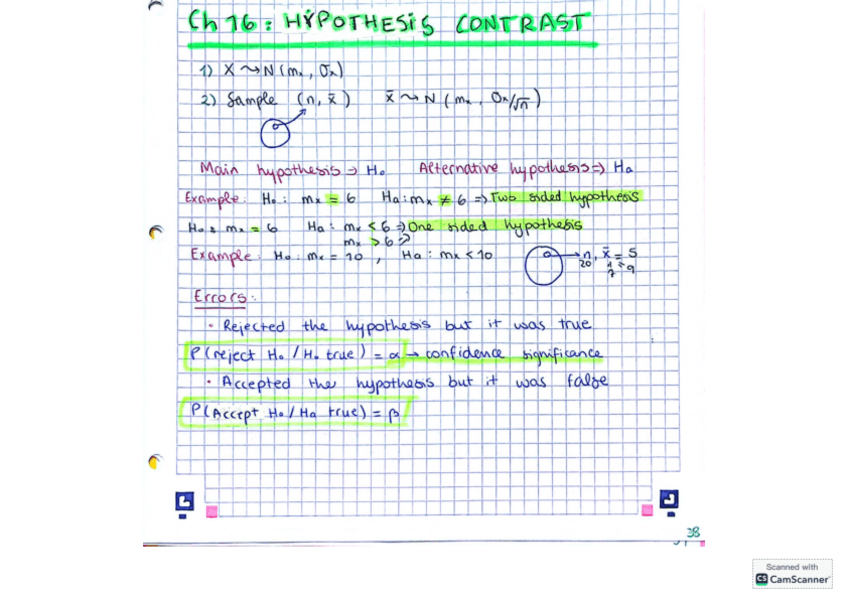 Ch 16: HYPOTHESIS CONTRAST
1) X ~> N (mₓ, σₓ)
2) Sample (n, x̄)    x̄ ~> N (mₓ, σₓ/√n)
Main hypothesis => H₀    Alternative hypothesis => Ha
Example: H₀: mₓ = 6    Ha: mₓ ≠ 6 => Two sided hypothesis
H₀: mₓ = 6    Ha: mₓ < 6 => One sided hypothesis
mₓ > 6 =>
Example: H₀: mₓ = 10, Ha: mₓ < 10    → n, x̄ = 5
20    9
Errors:
· Rejected the hypothesis but it was true
P(reject H₀ / H₀ true) = α → confidence significance
· Accepted the hypothesis but it was false
P(Accept H₀ / Ha true) = β
38
Scanned with
CS CamScanner